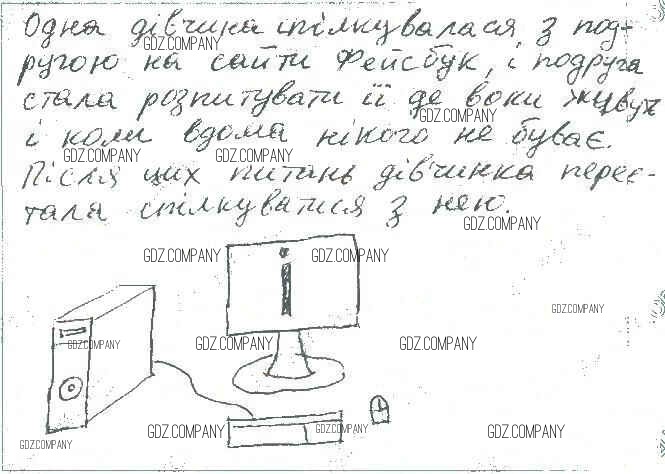 Одна дівчина спілкувалася з под-
GDZ.COMPANY
ругою на сайти Фейсбук, і подруга
стала розпитувати її де вони живуть
GDZ.COMPANY
і коли вдома нікого не буває.
GDZ.COMPANY GDZ.COMPANY
Після цих питань дівчинка перес-
тала спілкуватися з нею.
GDZ.COMPANY
GDZ.COMPANY GDZ.COMPANY
GDZ.COMPANY
GDZ.COMPANY GDZ.COMPANY GDZ.COMPANY
GDZ.COMPANY GDZ.COMPANY GDZ.COMPANY
GDZ.COMPANY